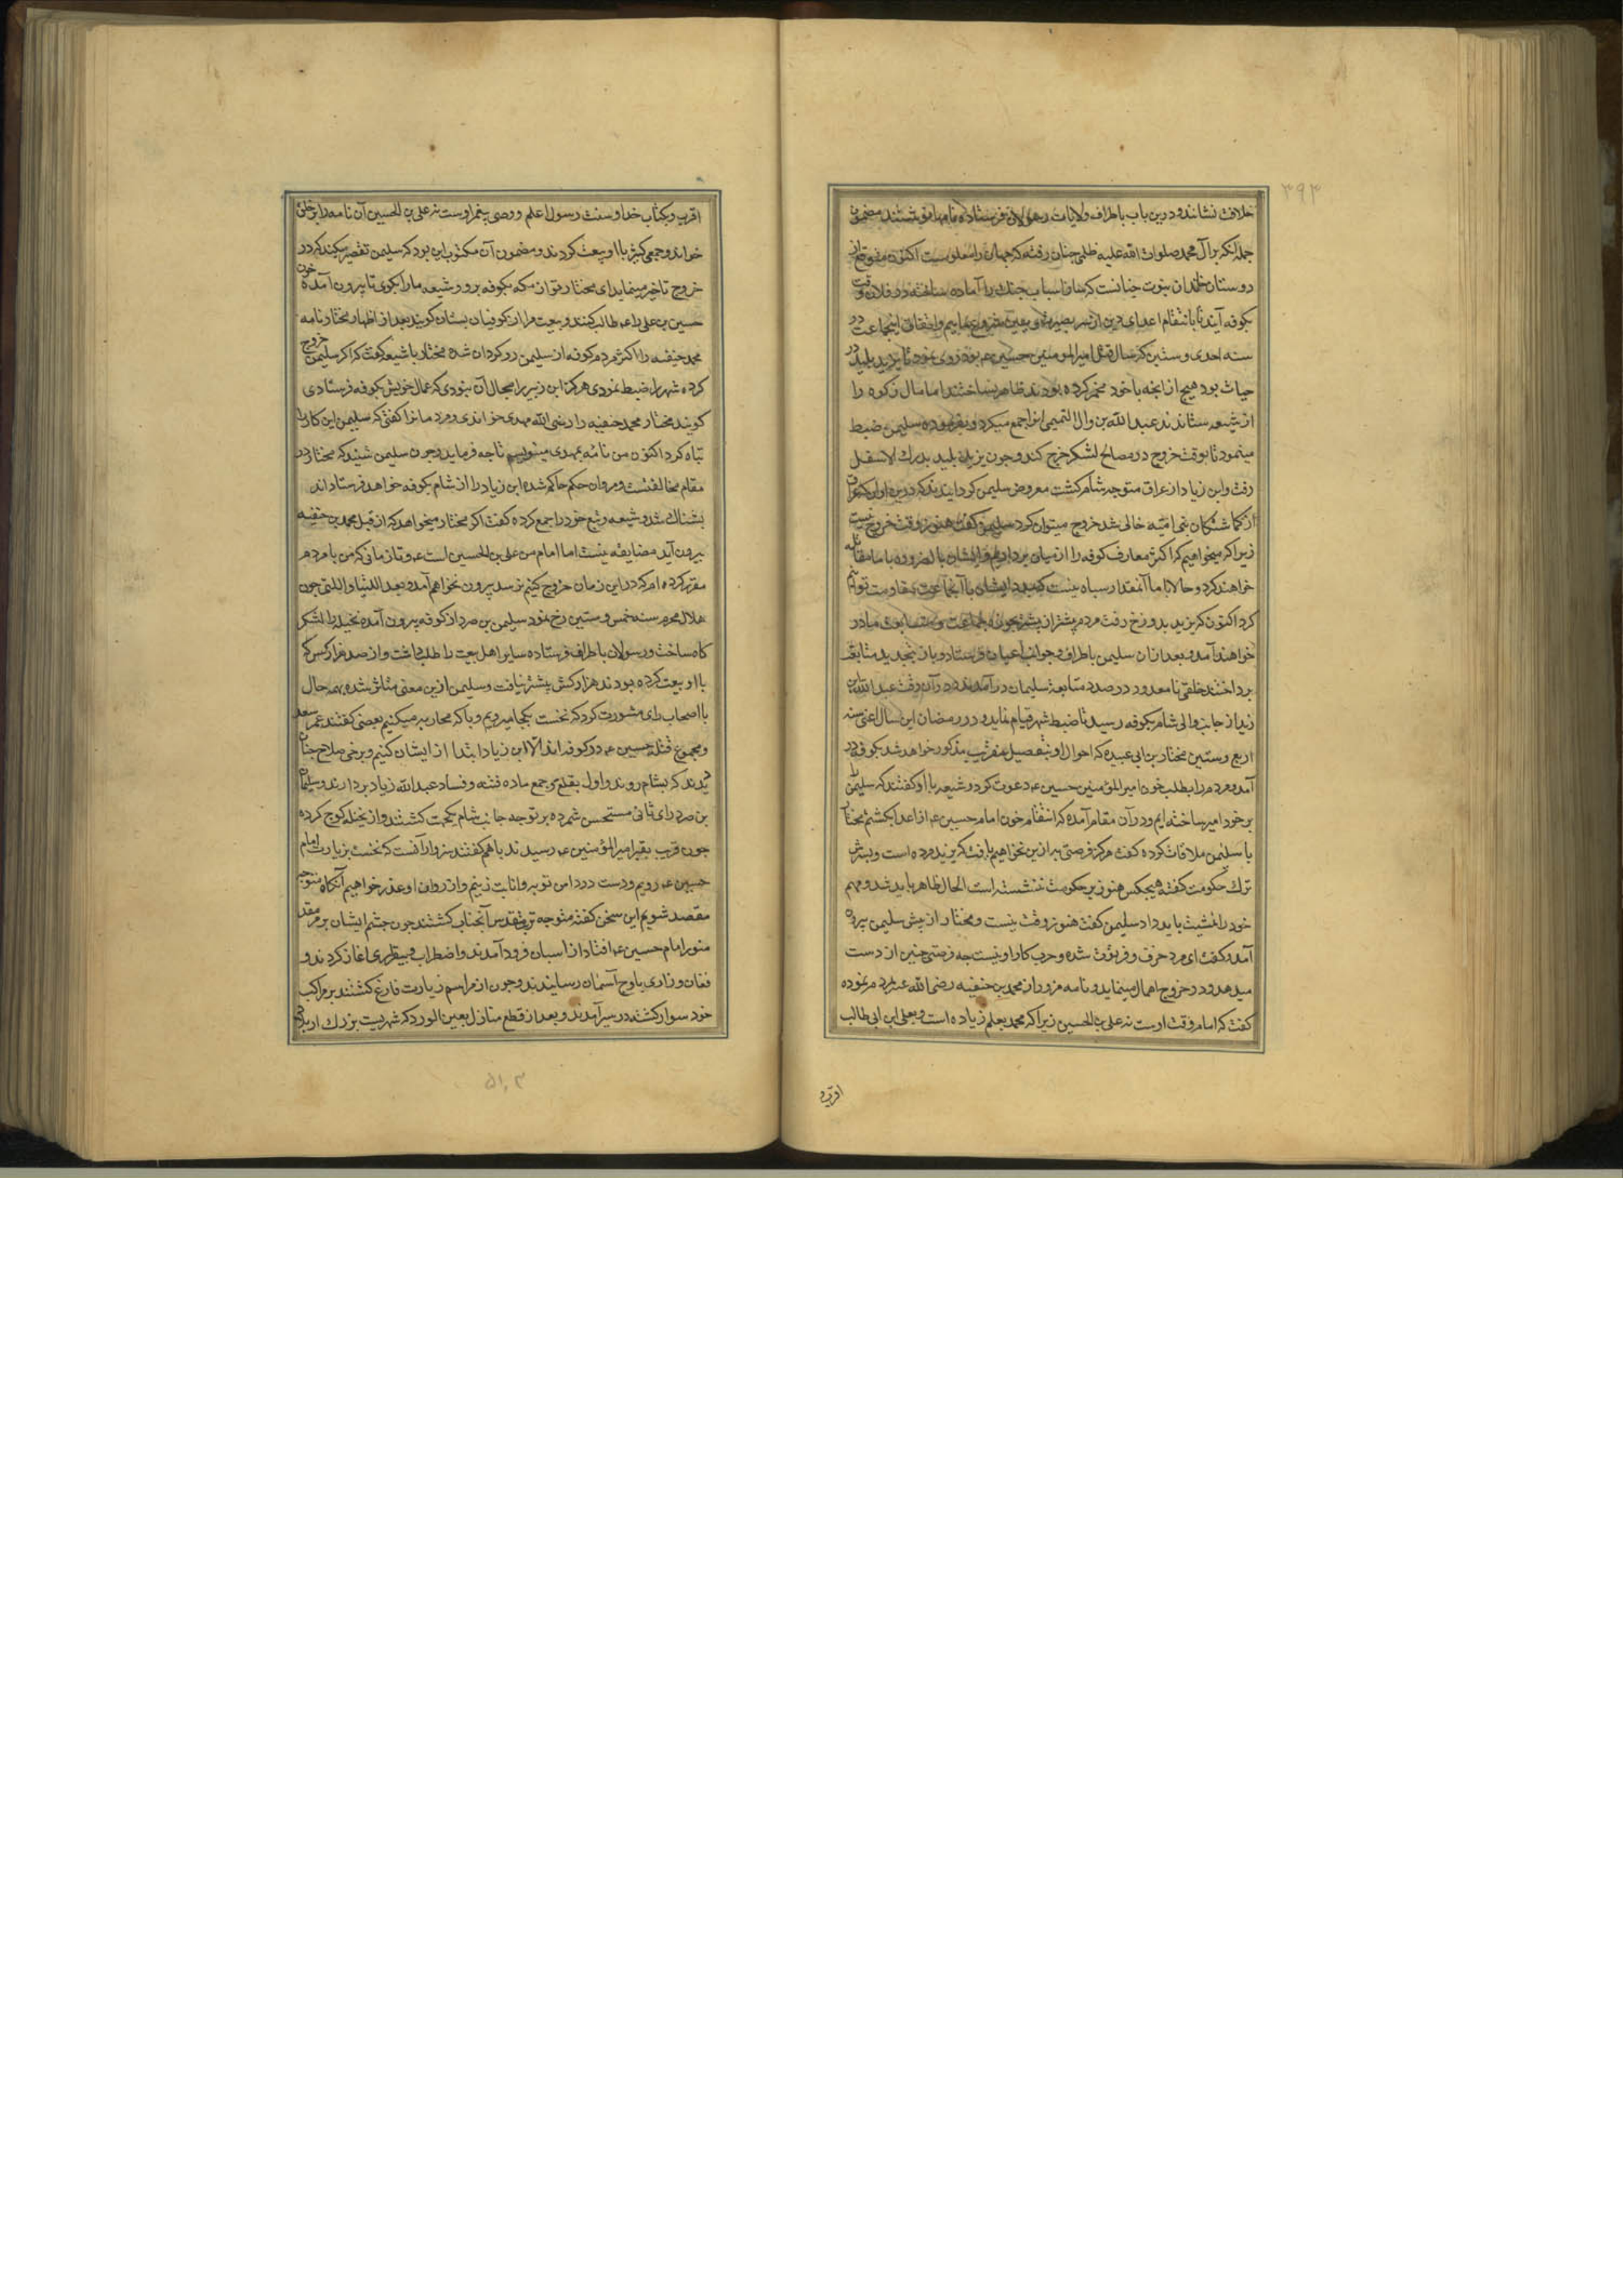 ۳۹۳
خلافت نشاندند و درین باب باطراف ولایات رسولان فرستاده نامها نوشتند مضمون
جمله آنکه برآل محمد صلوات الله علیه ظلمی چنان رفته که جهان را معلومست اکنون متوقع از
دوستان خاندان نبوت چنانست که ساز و اسباب جنک را آماده ساخته در فلان وقت
بکوفه آیند تا بانتقام اعدای دین از سر بصیرت و یقین شروع نماییم و اتفاق اینجماعت در
سنه احدی و ستین که سال قتل امیرالمومنین حسین عم بود روی نمود تا یزید پلید در
حیات بود هیچ از انچه باخود مخمر کرده بودند ظاهر نساختند اما مال زکوه را
از شیعه ستاندند عبد الله بن وال التمیمی انرا جمع میکرد و بفرموده سلیمن ضبط
مینمود تا بوقت خروج در مصالح لشکر خرج کند و چون یزید پلید بدرک الاسفل
رفت و ابن زیاد از عراق متوجه شام کشت معروض سلیمن کردانیدند که درین اوان که عراق
از کماشتکان بنی امیه خالی شد خروج میتوان کرد سلیمن کفت هنوز وقت خروج نیست
زیرا که میخواهیم که اکثر معارف کوفه را از میان برداریم و ایشان بالضروره با ما مقاتله
خواهند کرد و حالا با ما آنمقدار سپاه نیست که با ایشان با آنجماعت مقاومت توانیم
کرد اکنون که یزید بدوزخ رفت مردم پیشتر از پیشتر بمتابعت مبادر
خواهند آمد و بعد ازان سلیمن باطراف و جوانب اعیان فرستاد و باز بتجدید متابعت
پرداختند خلقی نامعدود در صدد متابعة سلیمان درآمدند و در آن وقت عبد الله بن
زید از جانب والی شام بکوفه رسید تا ضبط شهر قیام نماید و در رمضان این سال اعنی سنه
اربع و ستین مختار بن ابی عبیده که احوال او بتفصیل عنقریب مذکور خواهد شد بکوفه در
آمد و مردم را بطلب خون امیرالمؤمنین حسین عم دعوت کرد و شیعه با او کفتند که سلیمن را
بر خود امیر ساخته ایم و در آن مقام آمده که انتقام خون امام حسین عم از اعدا بکشیم مختار
با سلیمن ملاقات کرده کفت هرکز فرصتی به ازین نخواهیم یافت که یزید مرده است و پسرش
ترک حکومت کفته هیچکس هنوز بر حکومت ننشسته است الحال ظاهر باید شد و مهم
خود را تمشیت باید داد سلیمن کفت هنوز وقت نیست و مختار از پیش سلیمن بیرون
آمد و کفت ای مرد خرف و فرتوت شده و حرب کار او نیست چه فرصتی چنین از دست
میدهد و در خروج اهمال مینماید و نامه مزور از محمد بن حنفیه رضی الله عنه بمردم نموده
کفت که امام وقت اوست نه علی بن الحسین زیرا که محمد بعلم زیاده است و بعلی ابن ابی طالب
اقرب و
اقرب و بکتاب خدا و سنت رسول اعلم و وصی پیغمبر اوست نه علی بن الحسین آن نامه را بر خلق
خواند و جمعی کثیر با او بیعت کردند و مضمون آن مکتوب این بود که سلیمن تقصیر میکند که در
خروج تاخیر مینماید ای مختار تو از مکه بکوفه برو و شیعه ما را بکوی تا بیرون آمده خون
حسین بن علی را عم طالب کنند و بیعت مرا از کوفیان بستان کویند بعد از اظهار مختار نامه
محمد حنفیه را اکثر مردم کوفه از سلیمن روکردان شده مختار با شیعه کفت که اکر سلیمن خروج
کرده شهر را ضبط نمودی هرکز ابن زبیر را مجال آن نبودی که عمال خویش بکوفه فرستادی
کویند مختار محمد حنفیه را رضی الله مهدی خواندی و مردمانرا کفتی که سلیمن این کار را
تباه کرد اکنون من نامه بمهدی مینویسم تا چه فرماید و چون سلیمن شنید که مختار در
مقام مخالفتست و مروان حکم حاکم شده ابن زیاد را از شام بکوفه خواهد فرستاد اند
یشناک شد و شیعه و تبع خود را جمع کرده کفت اکر مختار میخواهد که از قبل محمد بن حنفیه
بیرون آید مضایقه نیست اما امام من علی بن الحسین است عم و تا زمانی که من با مردم
مقرر کرده ام که در این زمان خروج کنیم نرسد بیرون نخواهم آمد و بعد اللتیا و اللتی چون
هلال محرم سنه خمس و ستین رخ نمود سلیمن بن صرد از کوفه بیرون آمده نخیله را لشکر
کاه ساخت و رسولان باطراف فرستاده سایر اهل بیعت را طلب داشت و از صد هزار کس که
با او بیعت کرده بودند هزار کس بیشتر نیافت و سلیمن ازین معنی متاثر شده بهمه حال
با اصحاب رای مشورت کرد که نخست بکجا میرویم و با که محاربه میکنیم بعضی کفتند عمر سعد
و مجموع قتله حسین عم در کوفه اند الا ابن زیاد ابتدا از ایشان کنیم و برخی صلاح چنان
دیدند که بشام روند و اول بقلع و جمع ماده فتنه و فساد عبد الله زیاد بردارند و سلیمان
بن صرد رای ثانی مستحسن شمرده بر توجه جانب شام یکجهت کشتند و از نخیله کوچ کرده
چون قریب بقبر امیرالمؤمنین عم رسیدند باهم کفتند سزاوار آنست که نخست بزیارت امام
حسین عم رویم و دست در دامن توبه و انابت زنیم و از روان او عذر خواهیم آنکاه متوجه
مقصد شویم این سخن کفته متوجه تربت مقدس آنجناب کشتند چون چشم ایشان بر مرقد
منور امام حسین عم افتاد از اسبان فرود آمدند و اضطراب و بیقراری اغاز کردند و
فغان و زاری باوج آسمان رسانیدند و چون از مراسم زیارت فارغ کشتند بر مراکب
خود سوار کشته در سیر آمدند و بعد از قطع منازل بعین الورد که شهریست بزرک از بلاد
۵۱۰۳